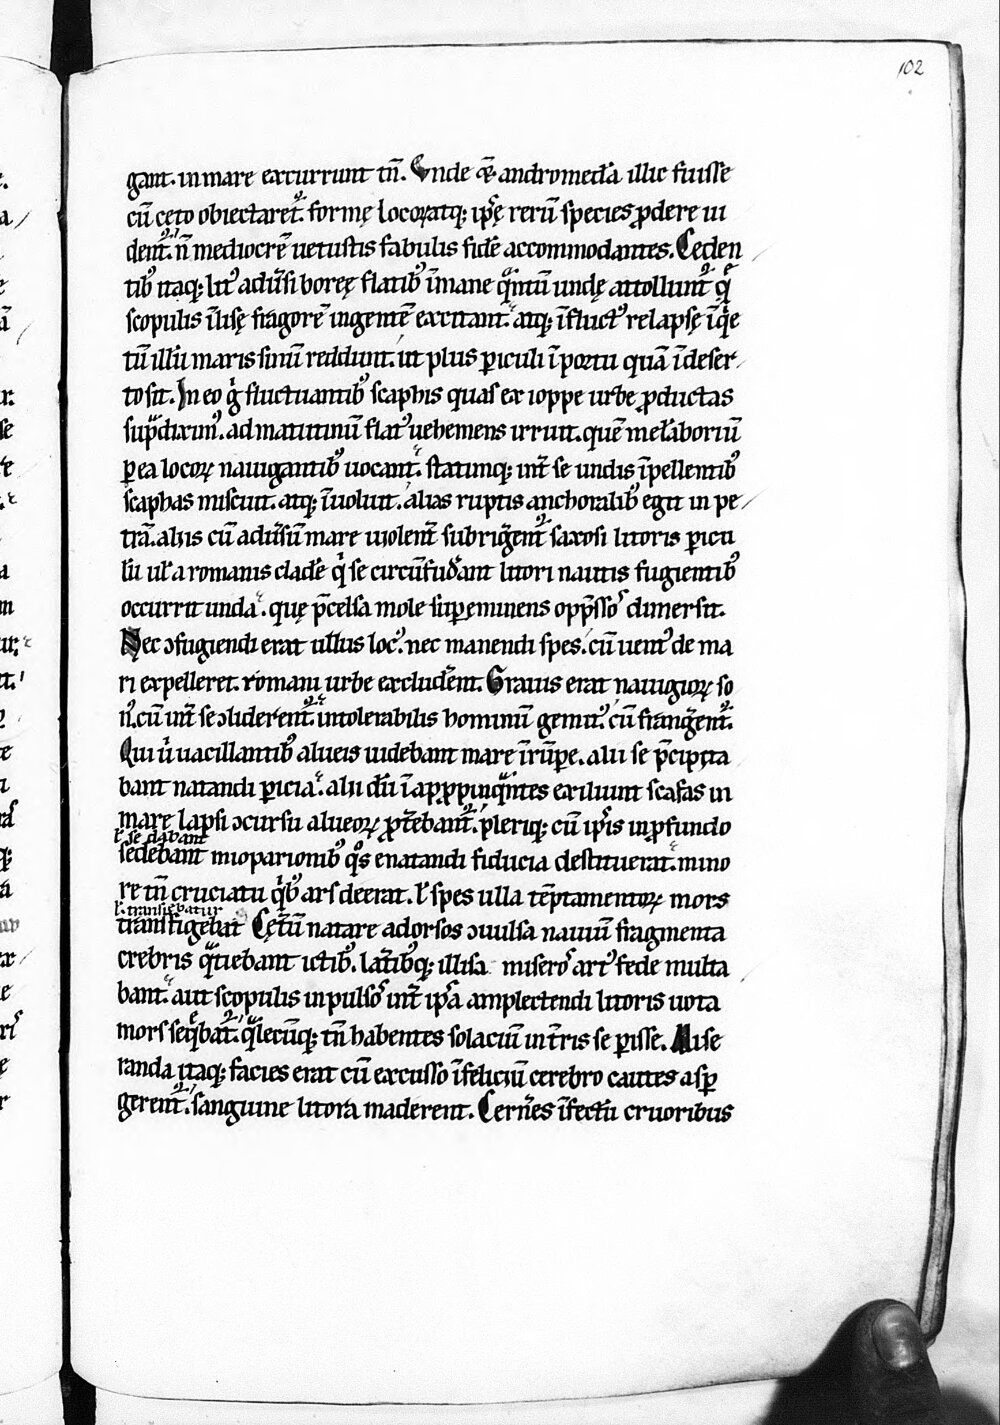 102
gant. in mare excurrunt tn̄. Unde & andromedā illic fuisse
cū cęto obiectaret᷑. formę locoꝝ atq; ip̄ę rerū species ꝓdere ui
dent᷑. n̄ mediocrē uetustis fabulis fidē accommodantes. Ceden
tibꝰ itaq; litꝰ adū̓si boreę flatibꝰ īmane qͣntū undę attollunt᷑ qͤ
scopulis īlisę fragorē ingentē excitant. atq; ī fluctꝰ relapsę īqͥe
tū illū maris sinū reddunt. ut plus ꝑiculi ī portu quā ī deser
to sit. In eo gͥ fluctuantibꝰ scaphis quas ex ioppe urbe ꝓductas
supͣdiximꝰ. ad matutinū flatꝰ uehemens irruit. quē melāboriū
ꝑ ea locoꝝ nauigantibꝰ uocant. statimq; int̄ se undis īpellentibꝰ
scaphas miscuit. atq; īuoluit. alias ruptis anchoralibꝰ egit in pe
trā. aliis cū adūsū mare uiolent̄ subrigēent᷑ saxosi litoris ꝑicu
lū ul̄ a romanis cladē qͥ se circūfudāant litori nautis fugientibꝰ
occurrit unda. quę p̄celsa mole suꝑeminens opp̄ssoˢ dimersit.
Nec ↄfugiendi erat ullus locꝰ. nec manendi spes. cū uentꝰ de ma
ri expelleret. romani urbe excludēnt. Grauis erat nauigioꝝ so
nꝰ. cū int̄ se ↄliderent᷑. intolerabilis hominū gemitꝰ. cū frangēent᷑.
Qui u̓ uacillantibꝰ alueis uidebant mare īrūpe. alii se p̄cipita
bant natandi ꝑicia. alii dū ī apꝓpinqͣntes exiliunt scafas in
mare lapsi ↄcursu alueoꝝ ꝓt̄ebant᷑. pleriq; cū ip̄is in ꝓfundo
l̄ se dabant
sedebant mioparionibꝰ qͦs enatandi fiducia destituerat. mino
re tn̄ cruciatu qͥbꝰ ars deerat. l̄ spes ulla tēptamentoꝝ mors
l̄ transiebatur
transfigebat Cęt̄ū natare adorsos ↄuulsa nauiū fragmenta
crebris qͣtiebant ictibꝰ. lat̄ibꝰq; illisa miseroˢ artꝰ fede multa
bant. aut scopulis inpulsoˢ int̄ ip̄a amplectendi litoris uota
mors seqͤbat᷑. qͣlecūq; tn̄ habentes solaciū in t̄ris se ꝑisse. Mise
randa itaq; facies erat cū excusso īfeliciū cerebro cautes aspͥ
gerent᷑. sanguine litora maderent. Cernēes īfectū cruoribus